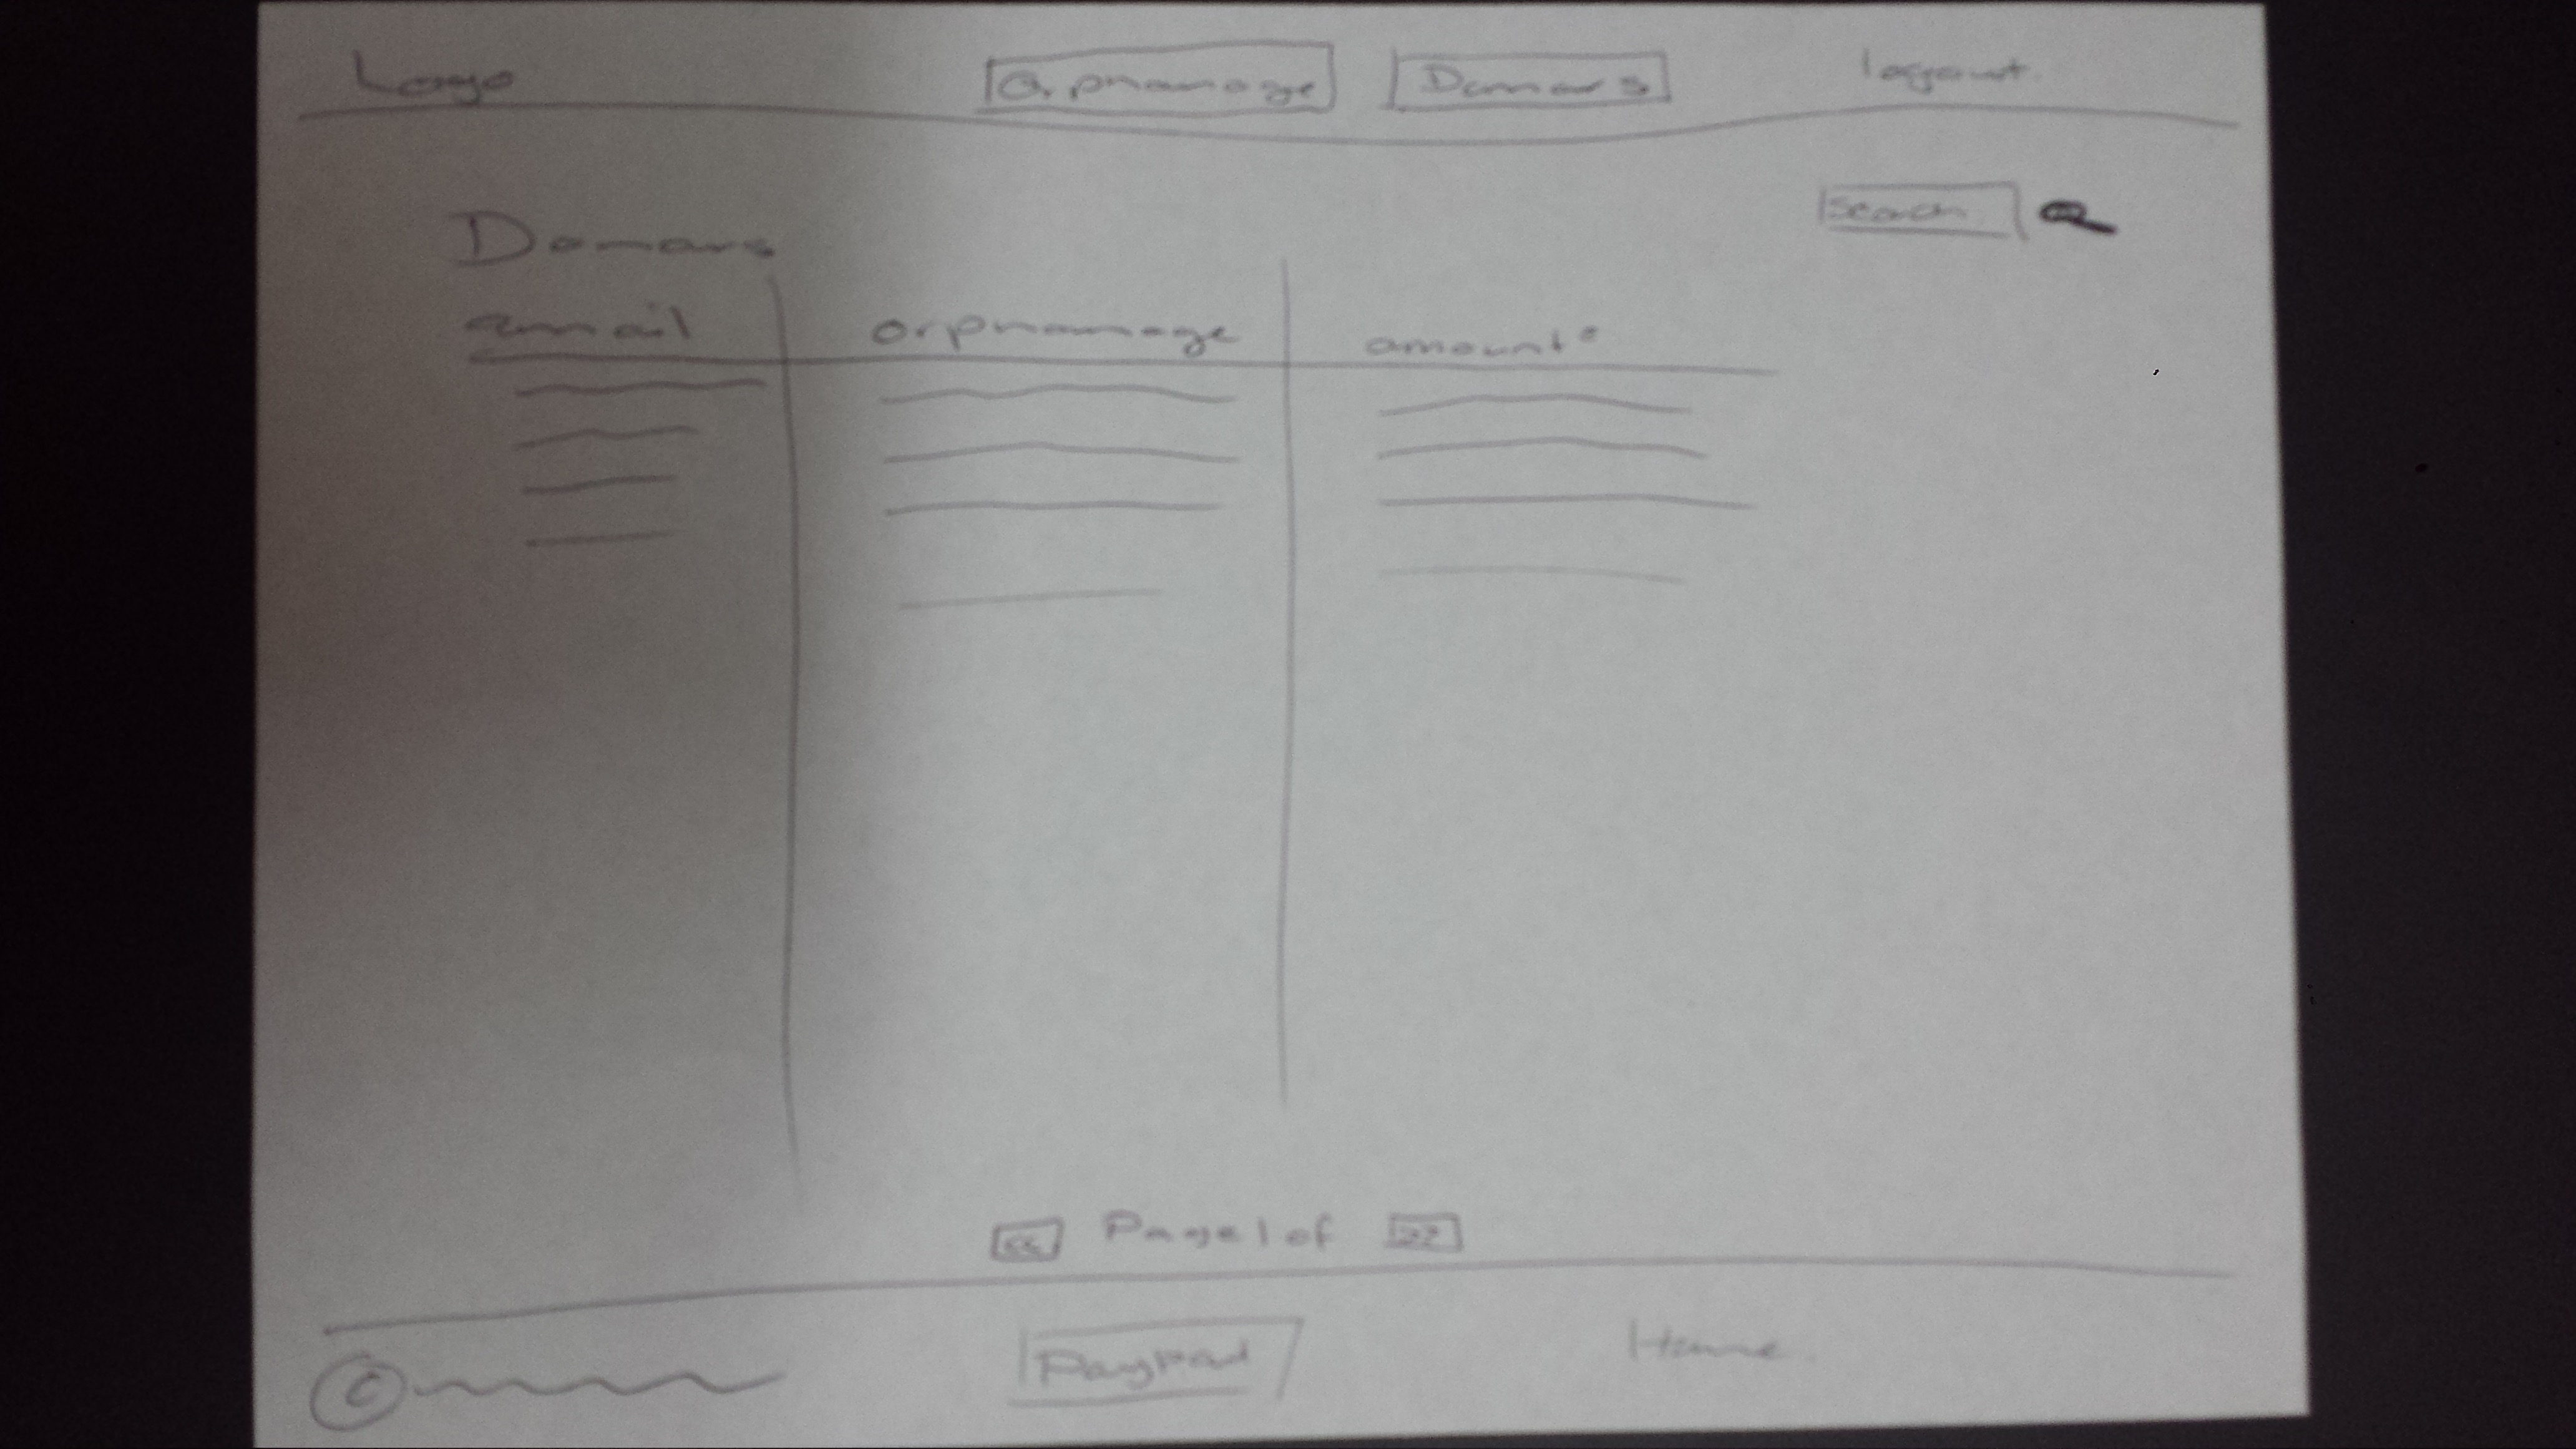 Logo Orphanage Donars logout
Search
Donars
email orphanage amount
<< Page 1 of >>
© Paypal Home